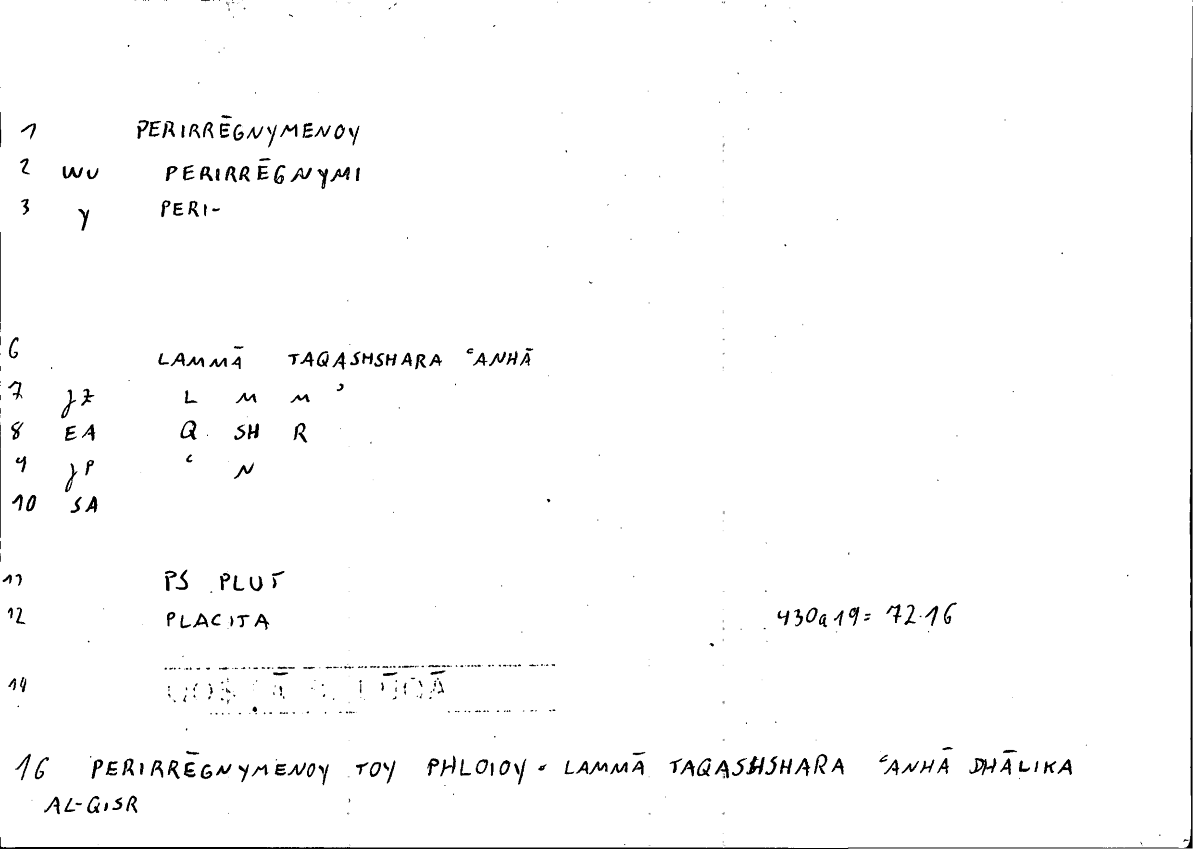 1 PERIRRĒGNYMENOY
2 WU PERIRRĒGNYMI
3 Y PERI-
6 LAMMĀ TAQASHSHARA ʿANHĀ
7 JZ L M M ʾ
8 EA Q SH R
9 JP ʿ N
10 SA
11 PS PLUT
12 PLACITA 430a19= 72.16
14
16 PERIRRĒGNYMENOY TOY PHLOIOY = LAMMĀ TAQASHSHARA ʿANHĀ DHĀLIKA
AL-QISR